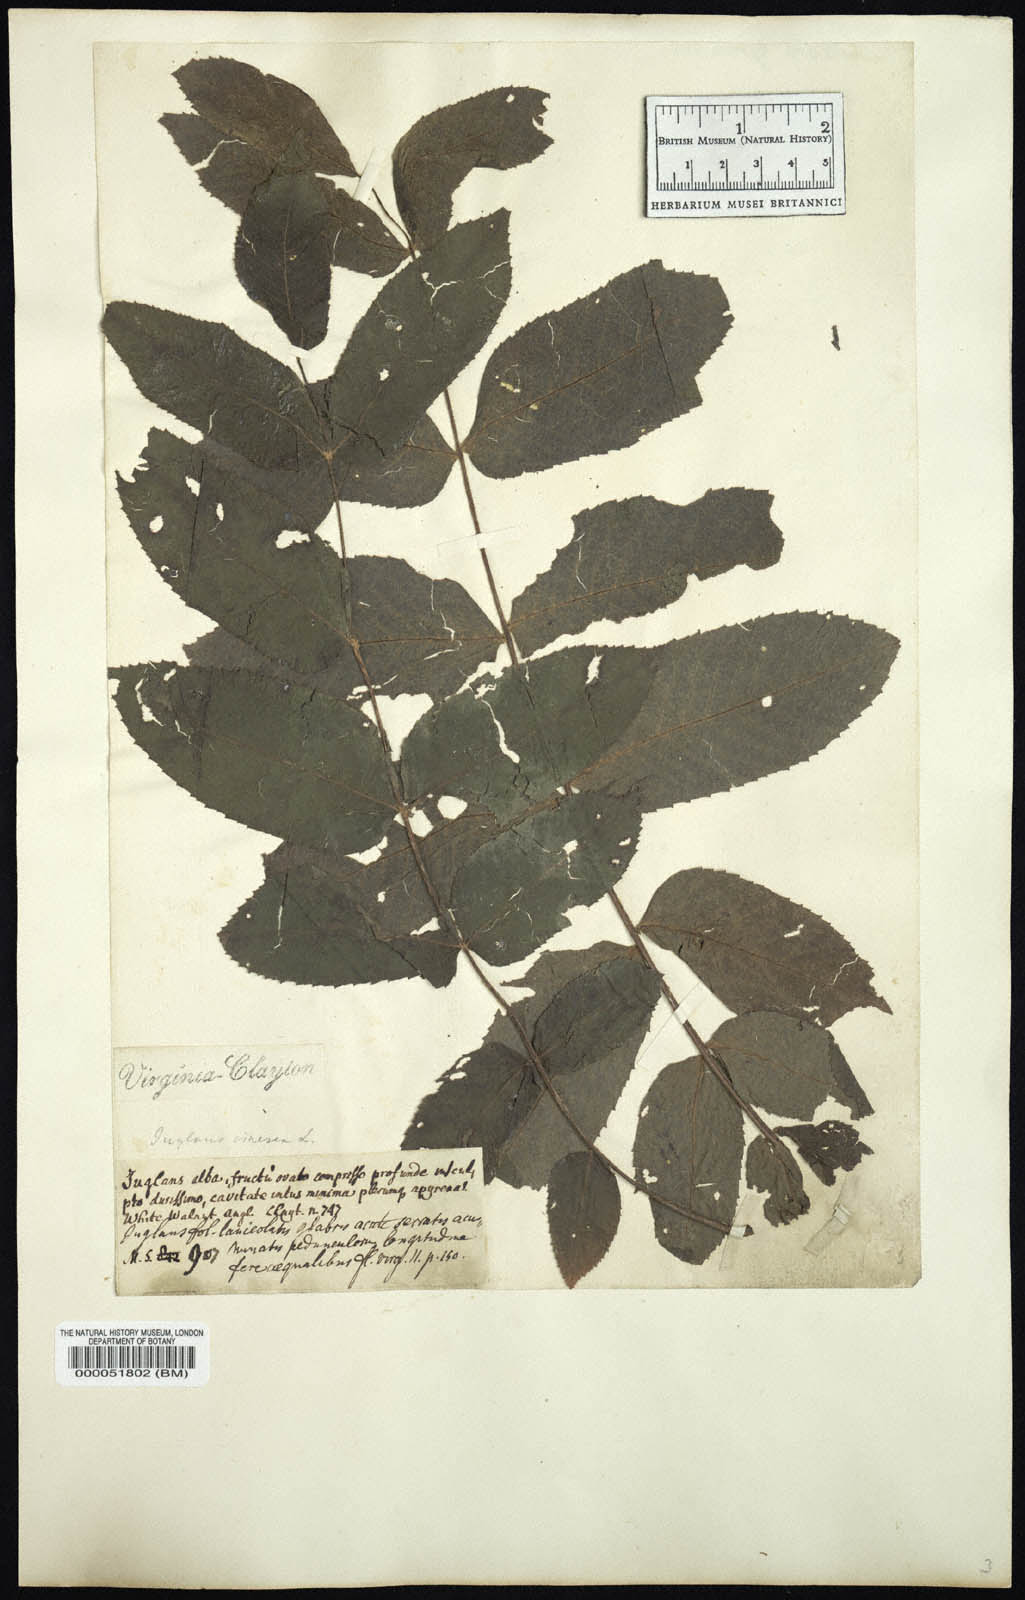 1 2
BRITISH MUSEUM (NATURAL HISTORY)
1 2 3 4 5
HERBARIUM MUSEI BRITANNICI
Virginia-Clayton
Juglans cinerea L.
Juglans alba, fructu ovato compresso profunde inscul,
pto durissimo, cavitate intus minima plerumq apyrena.
White Walnut Angl. Clayt. n. 747
Juglans fol. lanceolatis glabris acute serratis acu,
M. S. 907 minatis pedunculorum longitudine
fere æqualibus fl. Virg. 11. p. 150.
THE NATURAL HISTORY MUSEUM, LONDON
DEPARTMENT OF BOTANY
000051802 (BM)
3